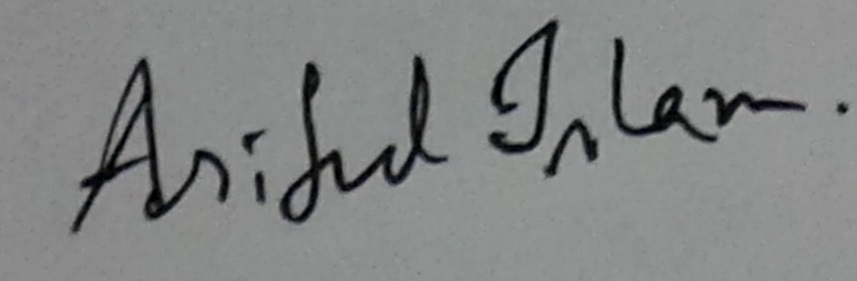 Ariful Islam.